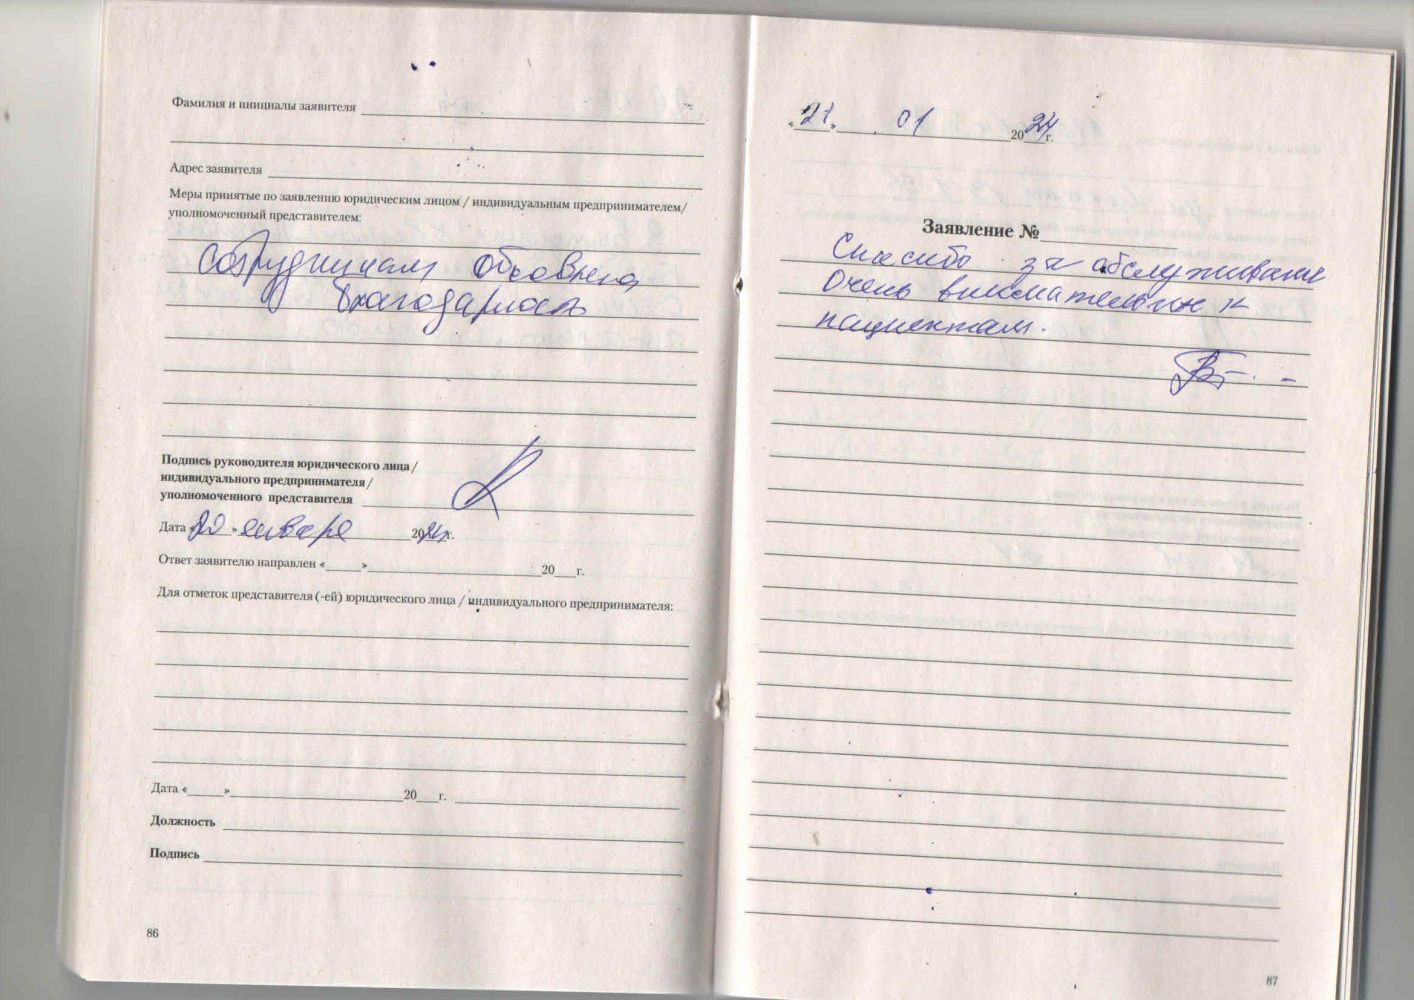 Фамилия и инициалы заявителя
Адрес заявителя
Меры принятые по заявлению юридическим лицом / индивидуальным предпринимателем/
уполномоченный представителем:
Сотрудникам объявлена
благодарность
Подпись руководителя юридического лица /
индивидуального предпринимателя /
уполномоченного представителя
Дата «20» января 2024г.
Ответ заявителю направлен «____»____20__г.
Для отметок представителя (-ей) юридического лица / индивидуального предпринимателя:
Дата «____»____20__г.
Должность
Подпись
86
«21» 01 2024г.
Заявление №
Спасибо за обслуживание
Очень внимательны к
пациентам.
87